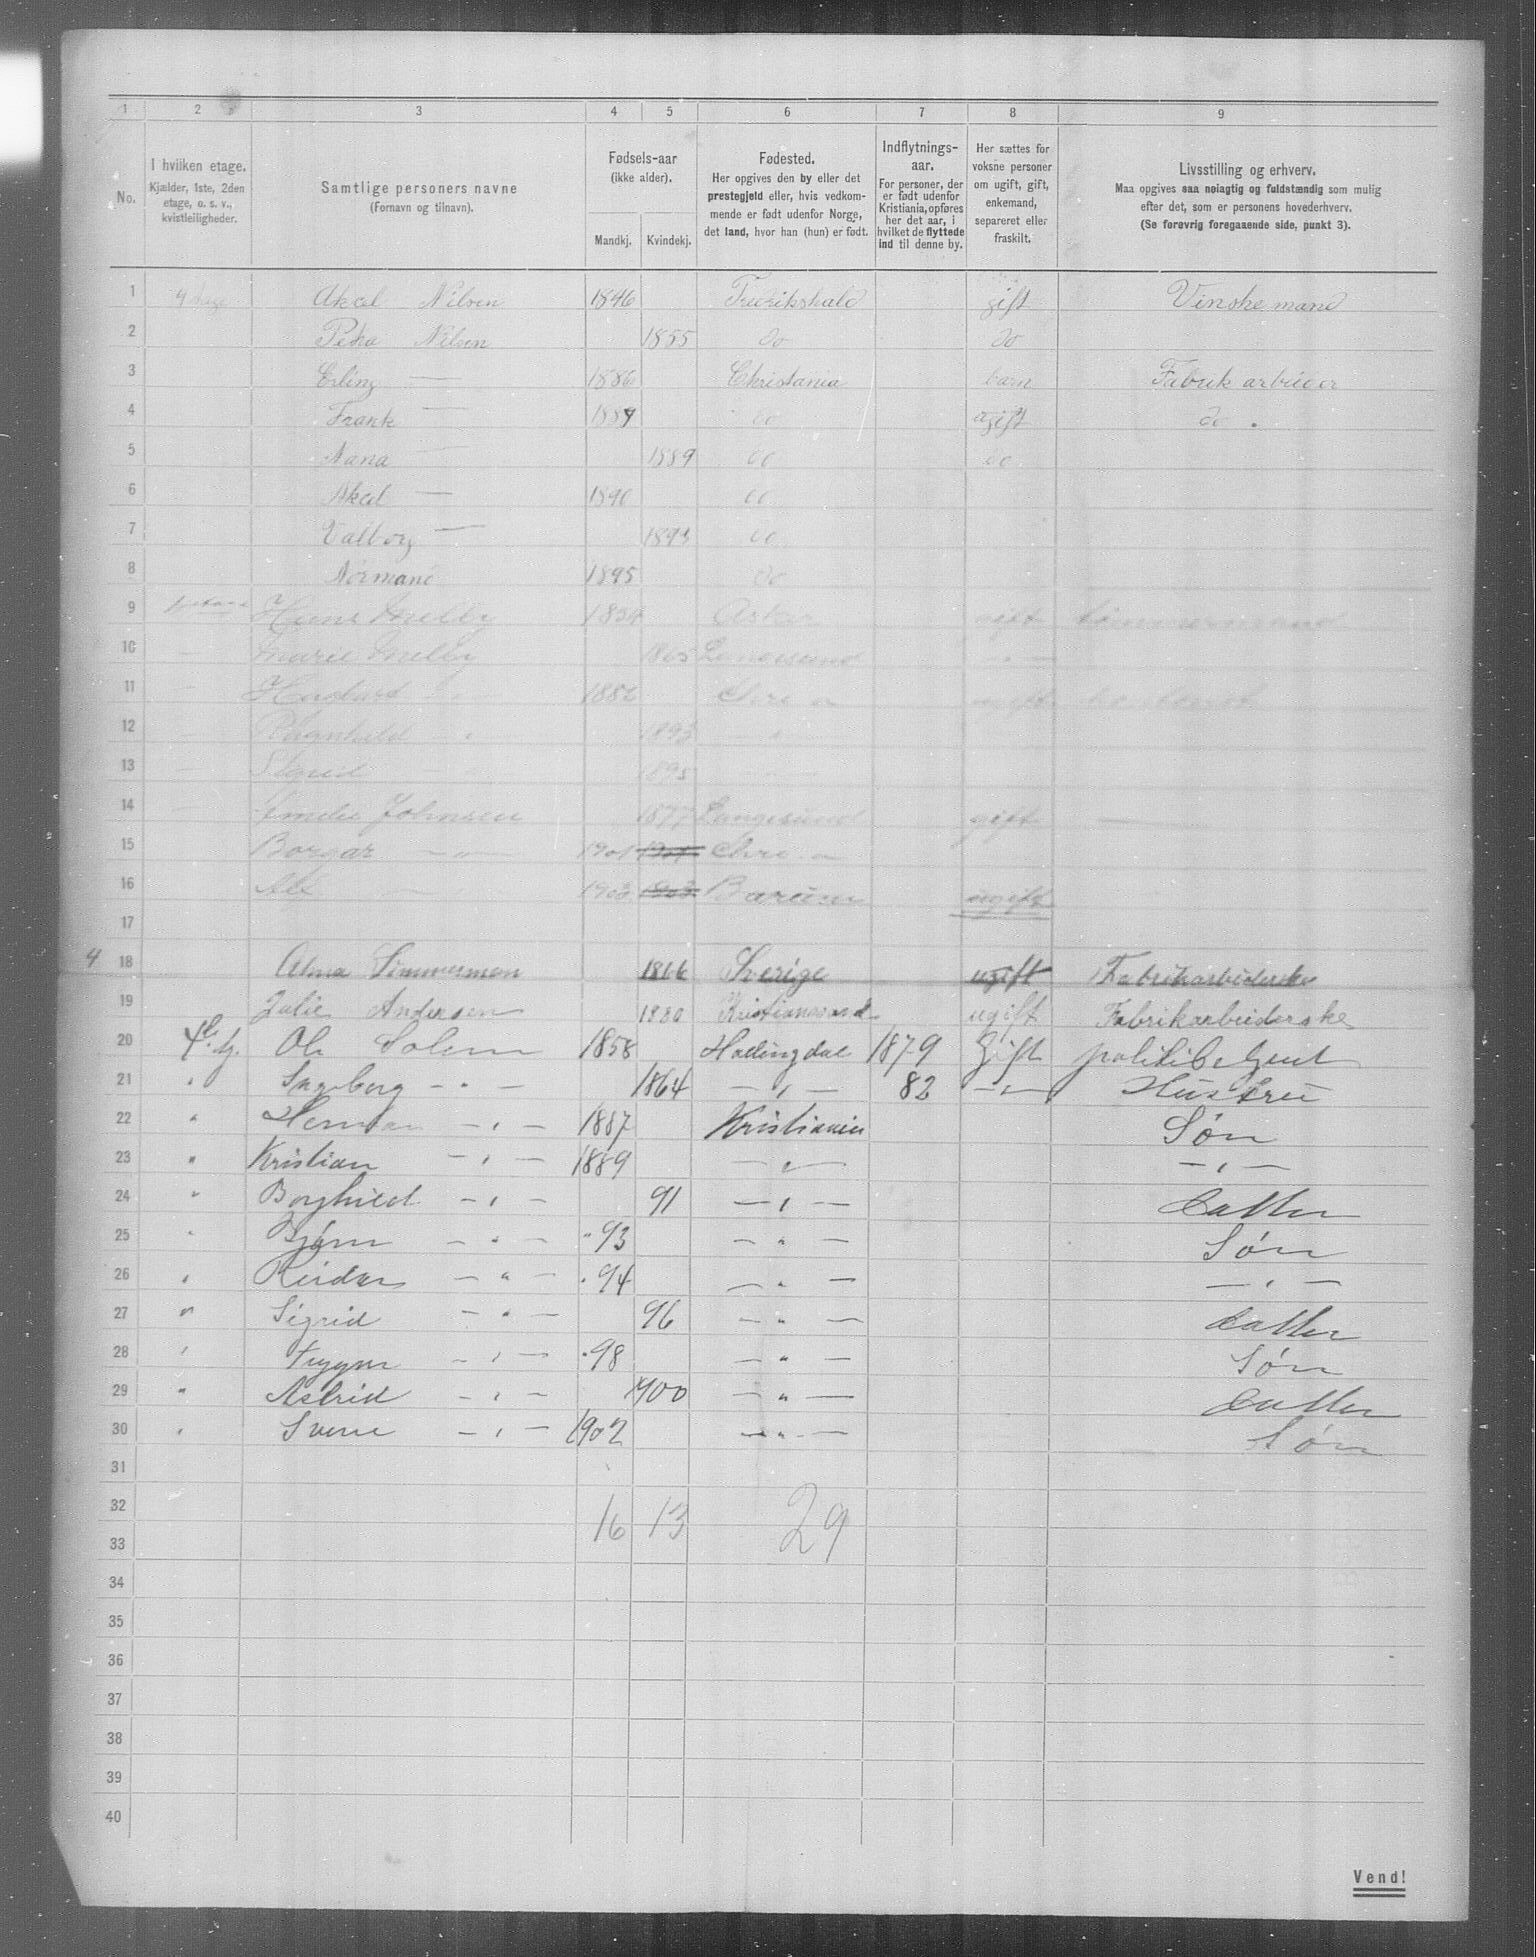 1 2 3 4 5 6 7 8 9
No.
I hvilken etage.
Kjælder, 1ste, 2den
etage, o. s. v.,
kvistleiligheder.
Samtlige personers navne
(Fornavn og tilnavn).
Fødsels-aar
(ikke alder).
Mandkj. Kvindekj.
Fødested.
Her opgives den by eller det
prestegjeld eller, hvis vedkom-
mende er født udenfor Norge,
det land, hvor han (hun) er født.
Indflytnings-
aar.
For personer, der
er født udenfor
Kristiania, opføres
her det aar, i
hvilket de flyttede
ind til denne by.
Her sættes for
voksne personer
om ugift, gift,
enkemand,
separeret eller
fraskilt.
Livsstilling og erhverv.
Maa opgives saa nøiagtig og fuldstændig som mulig
efter det, som er personens hovederhverv.
(Se forøvrig foregaaende side, punkt 3).
1 Aksel Nilsen 1846 Fredrikshald gift
2 Nilsen 1855 do do
3 Erling — 1886 Christania barn Fabrik arbeider
4 Frank — do ugift do.
5 Nana — 1889 do do
6 Aksel — 1890 do
7 Valborg — 1893 do
8 Normand 1895 do
9 Hans Melby Asker gift
10 Marie Melby
11 1882
12 Ragnhild 1893
13 Sigrid 1895
14 Johnsen 1877 Langesund gift
15 Borgar 1901 1901
16 Alf 1903 1903 Bærum ugift
17
4 18 Alma Simmerman 1866 Sverige ugift Fabrikarbeiderske
19 Julie Andersen 1880 Kristianssand ugift Fabrikarbeiderske
20 Ole Solem 1858 Hadingdal 1879 Gift politibetjent
21 " Ingeborg — " — 1864 — " — 82 — " — Hustru
22 " Herman — " — 1887 Kristiania Søn
23 " Kristian — " — 1889 — " — — " —
24 " Borghild — " — 91 — " — Datter
25 " Bjørn — " — " 93 — " — Søn
26 " Reidar — " — " 94 — " — — " —
27 " Sigrid — " — 96 — " — Datter
28 " Trygve — " — " 98 — " — Søn
29 " Astrid — " — 1900 — " — Datter
30 " Sverre — " — 1902 — " — Søn
31
32
16 13 29
33
34
35
36
37
38
39
40
Vend!